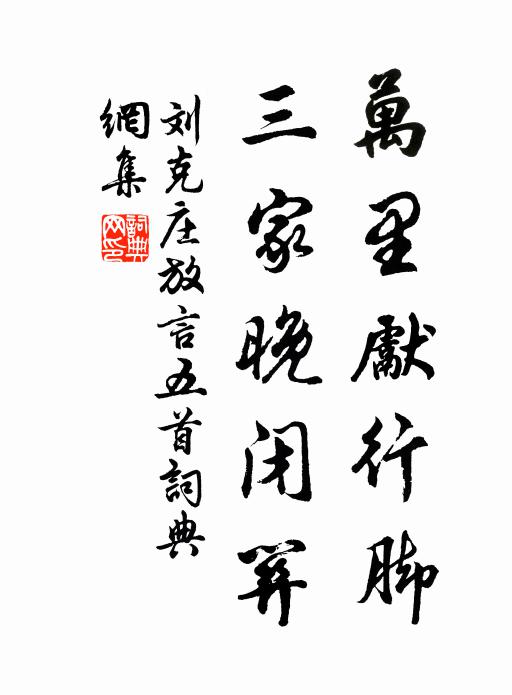 萬里獻行脚
三家晚闭
刘克庄放言五首詞典
網集
詞典
网印